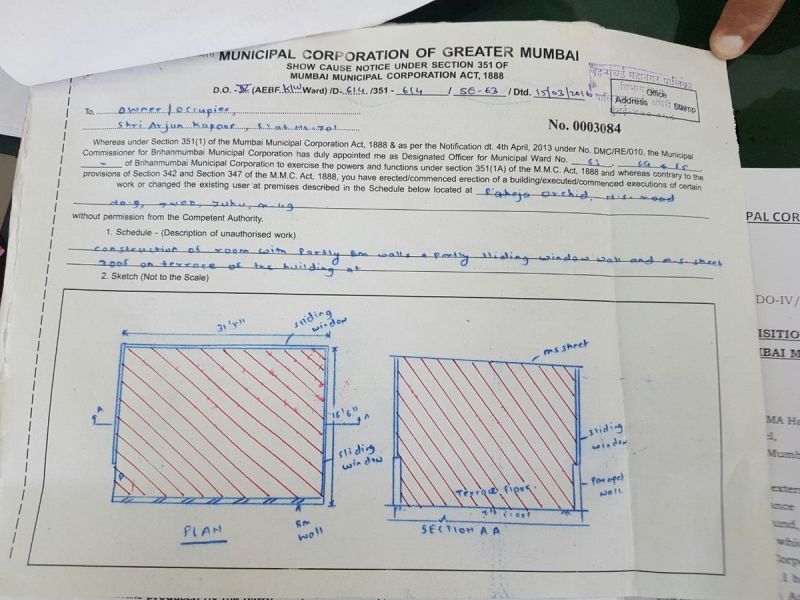 MUNICIPAL CORPORATION OF GREATER MUMBAI
SHOW CAUSE NOTICE UNDER SECTION 351 OF
MUMBAI MUNICIPAL CORPORATION ACT, 1888
D.O. - IV (AEBF. K/W Ward) /D- 614 /351 - 614 / SE-63 / Dtd. 15/03/2016
बृहन्मुंबई महानगर पालिका
Office
Address Stamp
To, Owner/occupier,
Shri Arjun Kapoor, Flat No. 701
No. 0003084
Whereas under Section 351(1) of the Mumbai Municipal Corporation Act, 1888 & as per the Notification dt. 4th April, 2013 under No. DMC/RE/010, the Municipal
Commissioner for Brihanmumbai Municipal Corporation has duly appointed me as Designated Officer for Municipal Ward No. 61, 64 & 65
- of Brihanmumbai Municipal Corporation to exercise the powers and functions under section 351(1A) of the M.M.C. Act, 1888 and whereas contrary to the
provisions of Section 342 and Section 347 of the M.M.C. Act, 1888, you have erected/commenced erection of a building/executed/commenced executions of certain
work or changed the existing user at premises described in the Schedule below located at Raheja Orchid, N.S. road
no. 9, Juhu, m-49
without permission from the Competent Authority.
1. Schedule - (Description of unauthorised work)
construction of room with partly Bm walls & partly sliding window wall and m.s. sheet
roof on terrace of the building at
2. Sketch (Not to the Scale)
31'5"
sliding window
16'6"
A
A
sliding window
Bm wall
PLAN
ms sheet
sliding window
Parapet wall
Terrace floor
7th floor
SECTION AA
PAL COR
DO-IV/
ISITIO
BAI M
MA Ha
Mumb